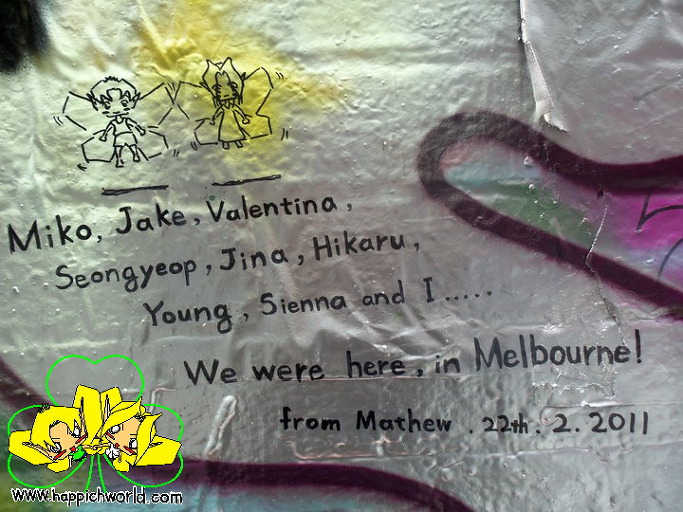 Miko, Jake, Valentina,
Seongyeop, Jina, Hikaru,
Young, Sienna and I.....
We were here, in Melbourne!
from Mathew. 22th. 2. 2011
www.happichworld.com